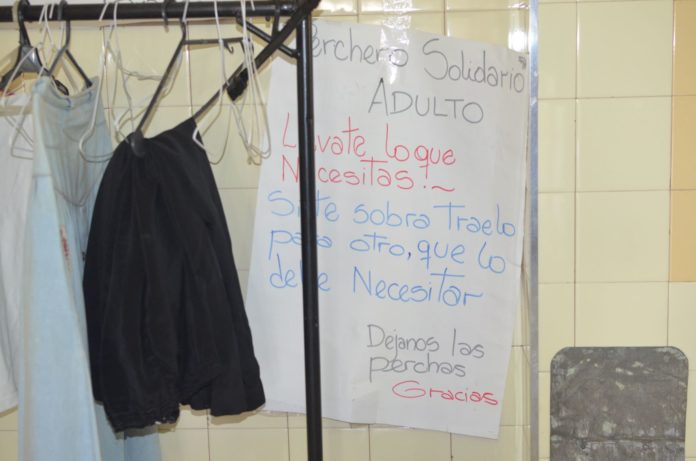 Perchero Solidario
ADULTO
Llevate lo que
Necesitas!~
Si te sobra Traelo
para otro, que lo
debe Necesitar
Dejanos las
perchas
Gracias